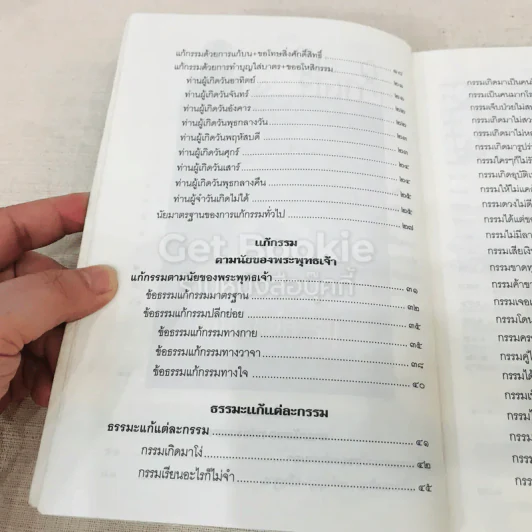 แก้กรรมด้วยการแก้บน+ขอโทษสิ่งศักดิ์สิทธิ์ ๑๙
แก้กรรมด้วยการทำบุญใส่บาตร+ขออโหสิกรรม ๒๑
ท่านผู้เกิดวันอาทิตย์ ๒๑
ท่านผู้เกิดวันจันทร์ ๒๑
ท่านผู้เกิดวันอังคาร ๒๒
ท่านผู้เกิดวันพุธกลางวัน ๒๓
ท่านผู้เกิดวันพฤหัสบดี ๒๓
ท่านผู้เกิดวันศุกร์ ๒๔
ท่านผู้เกิดวันเสาร์ ๒๔
ท่านผู้เกิดวันพุธกลางคืน ๒๕
ท่านผู้จำวันเกิดไม่ได้ ๒๕
นัยมาตรฐานของการแก้กรรมทั่วไป ๒๗
แก้กรรม
ตามนัยของพระพุทธเจ้า
แก้กรรมตามนัยของพระพุทธเจ้า ๓๑
ข้อธรรมแก้กรรมมาตรฐาน ๓๒
ข้อธรรมแก้กรรมปลีกย่อย ๓๕
ข้อธรรมแก้กรรมทางกาย ๓๕
ข้อธรรมแก้กรรมทางวาจา ๓๘
ข้อธรรมแก้กรรมทางใจ ๔๐
ธรรมะแก้แต่ละกรรม
ธรรมะแก้แต่ละกรรม ๔๑
กรรมเกิดมาโง่ ๔๒
กรรมเรียนอะไรก็ไม่จำ ๔๕
Get Bookie
ร้านหนังสือบุ๊คกี้
กรรมเกิดมาเป็นคน
กรรมเป็นคนมากโร
กรรมเจ็บป่วยไม่ส
กรรมเกิดมาไม่สว
กรรมเกิดมาไม่ห
กรรมเกิดมารูปร่
กรรมใครๆก็ไม่รั
กรรมเกิดอุบัติเ
กรรมให้ไม่แคล้
กรรมดวงไม่ดี
กรรมได้แต่ข
กรรมไม่มีลา
กรรมเสียเงิ
กรรมขาดท
กรรมค้าขา
กรรมเจอแ
กรรมโดน
กรรมครอ
กรรมคู่ไ
กรรมได้
กรรมเ
กรรมไ
กรรม
กรรม
กรร